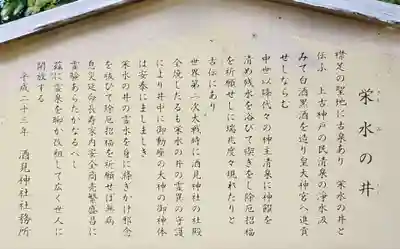 栄水の井
襟足の聖地に古泉あり　栄水の井と
伝ふ　上古神戸の民清泉の浄水及
みて白酒黒酒を造り皇大神宮へ進貢
せしならむ
中世以降代々の神主清泉に神饌を
清め残水を浴びて禊ぎをし除厄招福
を祈願せしに瑞兆度々現れたりと
古伝にあり
世界第二次大戦時に酒見神社の社殿
全焼したるも栄水の井の霊異の守護
により井中に御動座の大神の御神体
は安泰にましましき
栄水の井の霊水を身に滌ぎかけ邪念
を祓ひて除厄招福を祈願せば無病
息災延命長寿家内安全商売繁盛に
霊験あらたかなるべし
茲に霊泉を聊か改組して広く世人に
開放する
平成二十三年　酒見神社社務所